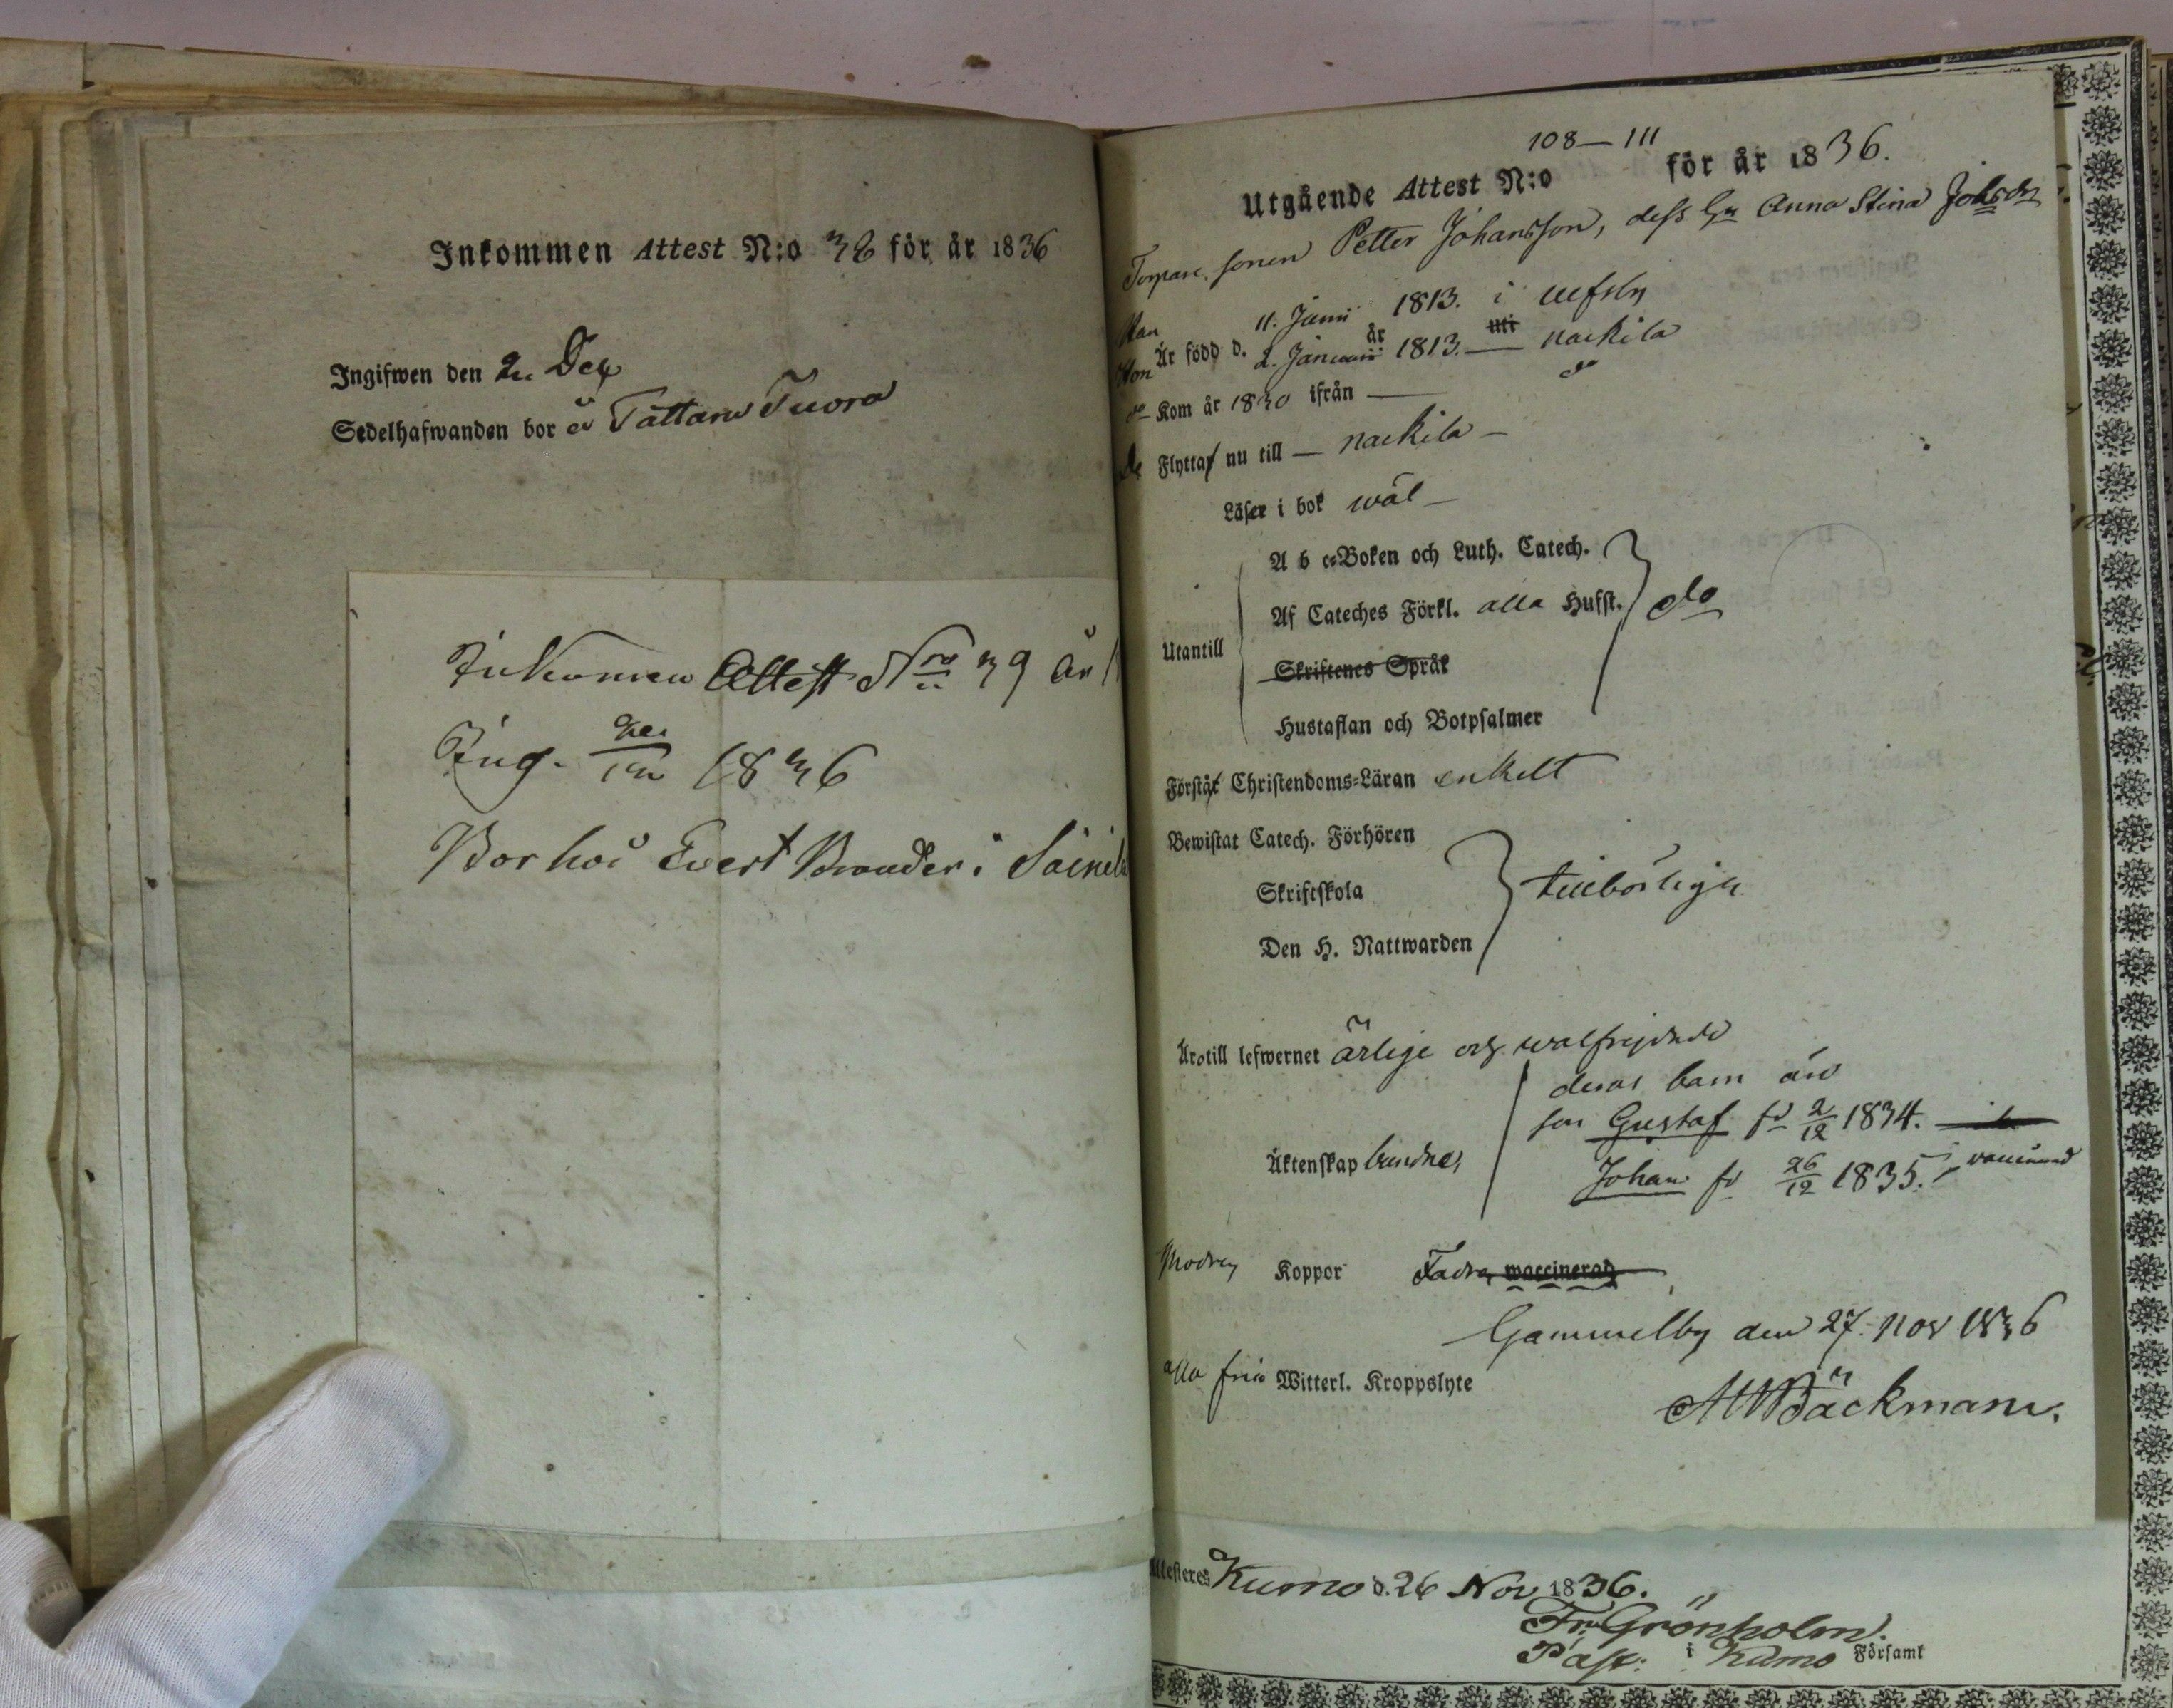 Inkommen Attest N:o 38 för år 1836
Ingifwen den 2 Dec
Sedelhafwanden bor å Tattara Tuora
Inkommen Attest Nro 39 år
Ing. 1836
Bor hos Evert Brander i Soinila
108–111
Utgående Attest N:o för år 1836.
Torpare sonen Petter Johansson, dess hu Anna Stina Johsdr
Han 11. Junii 1813. i Ulfsby
Hon Är född d. 2. Januarii år 1813. uti Nackila
Kom år 1830 ifrån — do
de Flytta nu till — Nackila —
Läser i bok wäl —
Utantill
A b c=Boken och Luth. Catech.
Af Cateches Förkl. alla Hufst. do
Skriftenes Språk
Hustaflan och Botpsalmer
Förstå Christendoms=Läran enkelt
Bewistat Catech. Förhören
Skriftskola tillbörligt
Den H. Nattwarden
Äro till lefwernet ärlige och wälfrejdade
deras barn äro
son Gustaf fd 2/12 1834.
Äktenskap bundne,
Johan fd 26/12 1835.
Modren Koppor Fadren waccinerad
Gammelby den 27. Nov 1836
alla fria Witterl. Kroppslyte
Bäckman.
Attesteres Kumo d. 26 Nov 1836.
Fr. Grönholm.
Past: i Kumo Församl